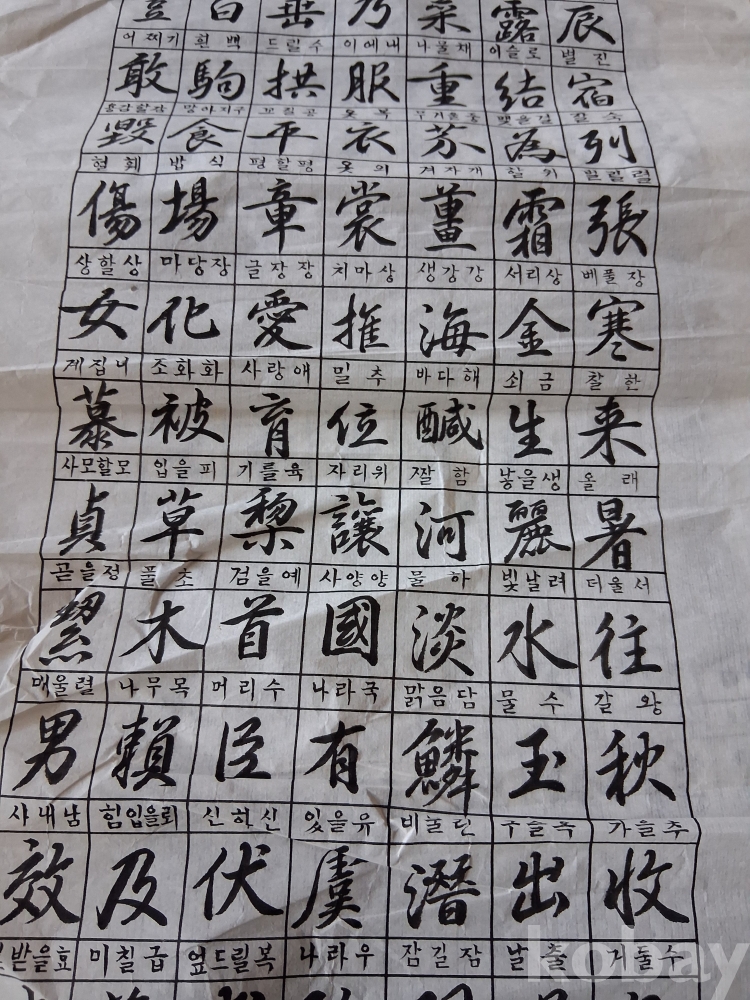 豈 白 垂 乃 菜 露 辰
어찌기 흰백 드릴수 이에내 나물채 이슬로 별진
敢 駒 拱 服 重 結 宿
망아지구 옷복 무거울중 맺을결 잘숙
毁 食 平 衣 芥 為 列
헐훼 밥식 평할평 옷의 겨자개 할위 벌릴렬
傷 場 章 裳 薑 霜 張
상할상 마당장 글장장 치마상 생강강 서리상 베풀장
女 化 愛 推 海 金 寒
계집녀 조화화 사랑애 밀추 바다해 쇠금 찰한
慕 被 育 位 鹹 生 来
사모할모 입을피 기를육 자리위 짤함 낳을생 올래
貞 草 黎 讓 河 麗 暑
곧을정 풀초 검을예 사양양 물하 빛날려 더울서
木 首 國 淡 水 往
매울렬 나무목 머리수 나라국 맑음담 물수 갈왕
男 賴 臣 有 鱗 玉 秋
사내남 힘입을뢰 신하신 있을유 비늘린 구슬옥 가을추
效 及 伏 虞 潛 出 收
받을효 미칠급 엎드릴복 나라우 잠길잠 날출 거둘수
kobay